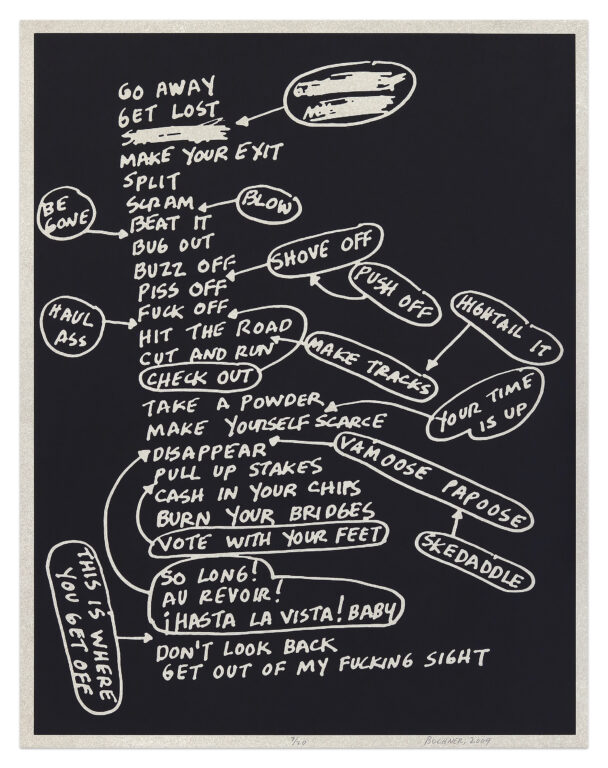 GO AWAY
GET LOST
MAKE YOUR EXIT
SPLIT
SCRAM
BLOW
BE
GONE
BEAT IT
BUG OUT
BUZZ OFF
SHOVE OFF
PUSH OFF
PISS OFF
FUCK OFF
HAUL
ASS
HIT THE ROAD
CUT AND RUN
MAKE TRACKS
HIGHTAIL IT
CHECK OUT
TAKE A POWDER
YOUR TIME
IS UP
MAKE YOURSELF SCARCE
DISAPPEAR
VAMOOSE PAPOOSE
SKEDADDLE
PULL UP STAKES
CASH IN YOUR CHIPS
BURN YOUR BRIDGES
VOTE WITH YOUR FEET
SO LONG!
AU REVOIR!
¡HASTA LA VISTA! BABY
THIS IS WHERE
YOU GET OFF
DON'T LOOK BACK
GET OUT OF MY FUCKING SIGHT
BOCHNER, 2009